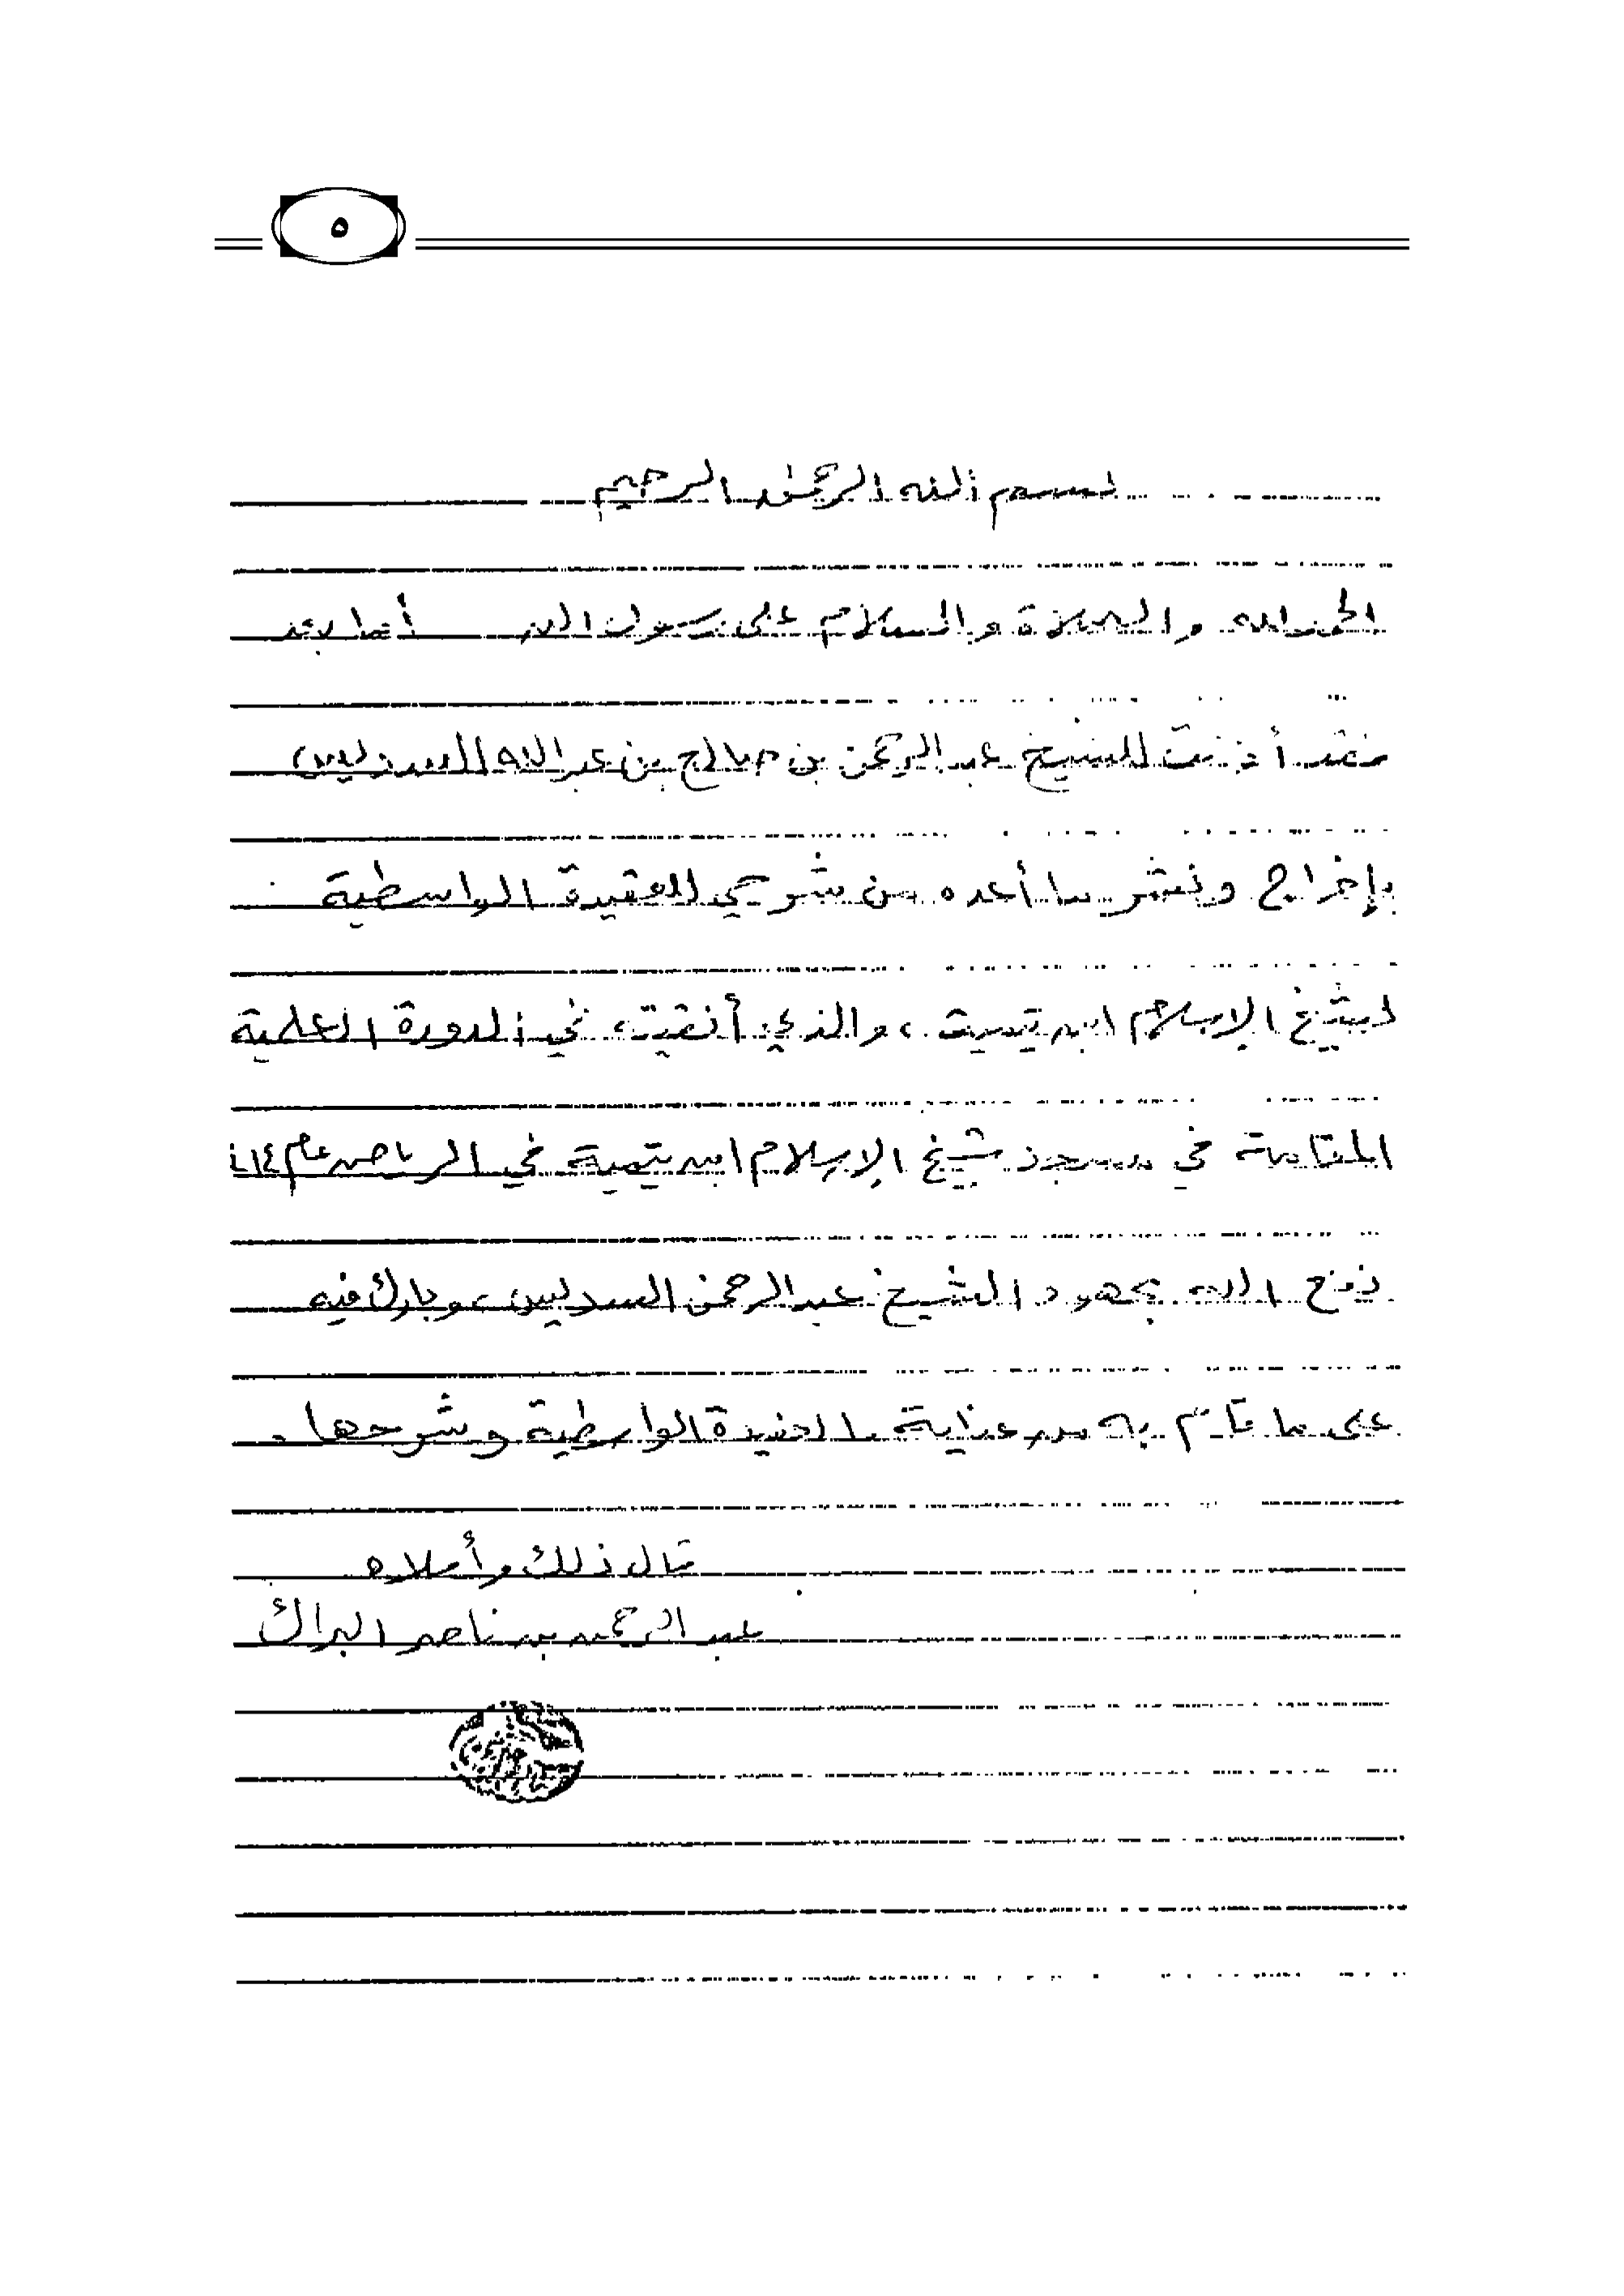 ٥
بسم الله الرحمن الرحيم
الحمد لله والصلاة والسلام على رسول الله أما بعد
فقد أذنت للشيخ عبد الرحمن بن صالح بن عبد الله السديس
بإخراج ونشر ما أعده من شرحي للعقيدة الواسطية
لشيخ الإسلام ابن تيمية، والذي ألقيته في الدورة العلمية
المقامة في مسجد شيخ الإسلام ابن تيمية في الرياض عام
نفع الله بجهود الشيخ عبدالرحمن السديس، وبارك فيه
على ما قام به من عناية بالعقيدة الواسطية وشرحها.
قال ذلك وأملاه
عبد الرحمن بن ناصر البراك